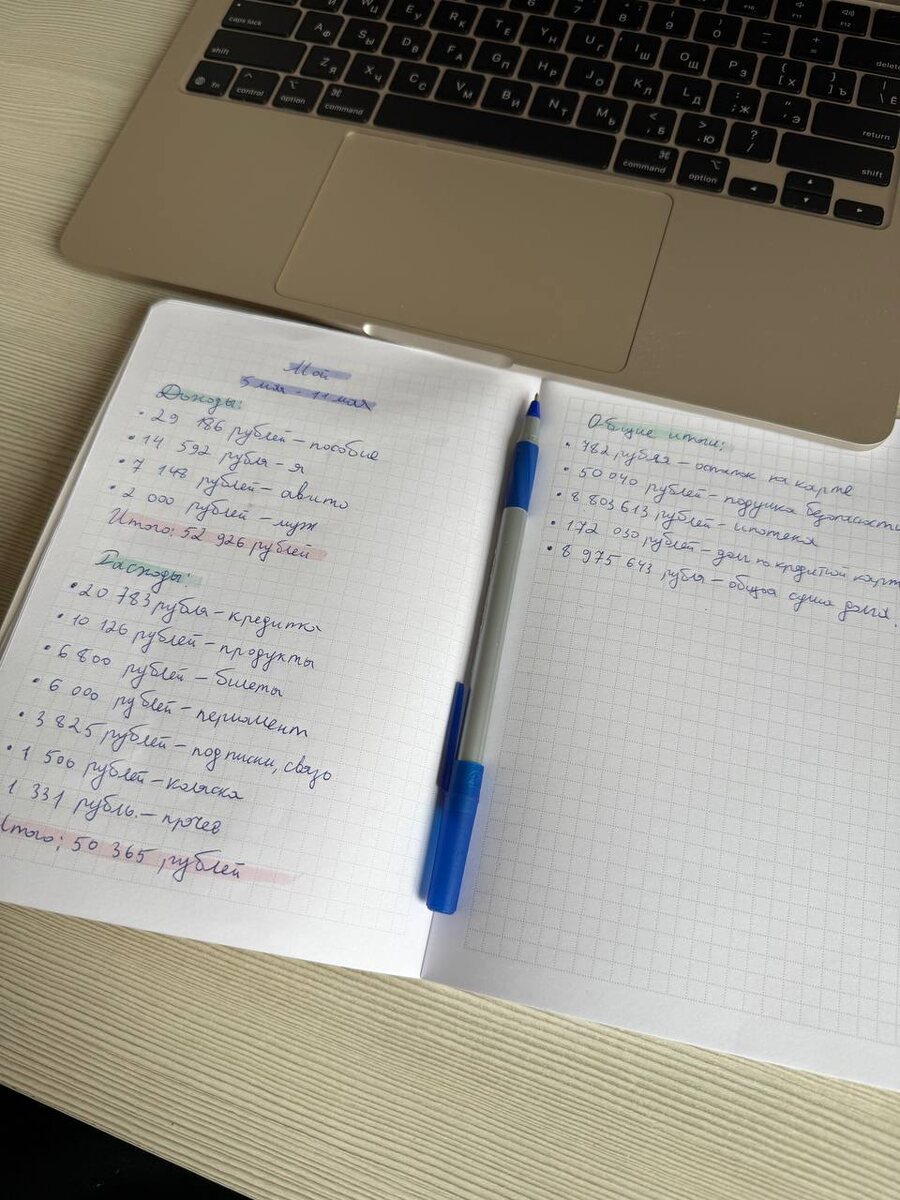 caps lock
shift
control
option
command
command
option
delete
return
shift
Май
5 мая - 11 мая
Доходы:
• 29 186 рублей – пособие
• 14 592 рубля – я
• 7 148 рублей – авито
• 2 000 рублей – муж
Итого: 52 926 рублей
Расходы:
• 20 783 рубля – кредитка
• 10 126 рублей – продукты
• 6 800 рублей – билеты
• 6 000 рублей – перманент
• 3 825 рублей – подписки, связь
• 1 500 рублей – коляска
1 331 рубль. – прочее
Итого: 50 365 рублей
Общие итоги:
• 782 рубля – остаток на карте
• 50 040 рублей – подушка безопасности
• 8 803 613 рублей – ипотека
• 172 030 рублей – долг по кредитной карт
• 8 975 643 рубля – общая сумма долга.